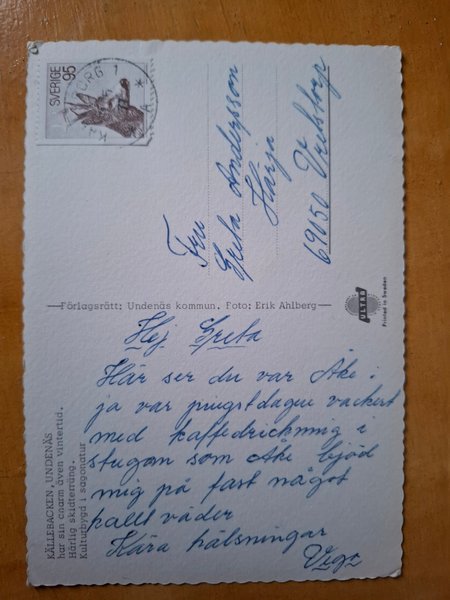 SVERIGE 95
ORG 1
Fru
Greta Andersson
Härja
69050 Vretstorp
Förlagsrätt: Undenäs kommun. Foto: Erik Ahlberg
ULTRA
Printed in Sweden
Hej Greta
Här ser du var Åke i
ja var pingstdagen vackert
med kaffedrickning i
stugan som Åke bjöd
mig på fast något
kallt väder
Kära hälsningar
KÄLLEBACKEN, UNDENÄS
har sin charm även vintertid.
Härlig skidterräng.
Kulturbygd i sagonatur